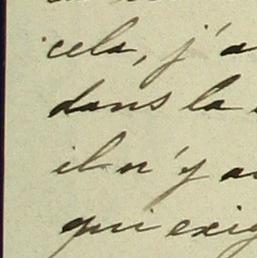 cela, j'a
dans la
il n'y a
qui exig